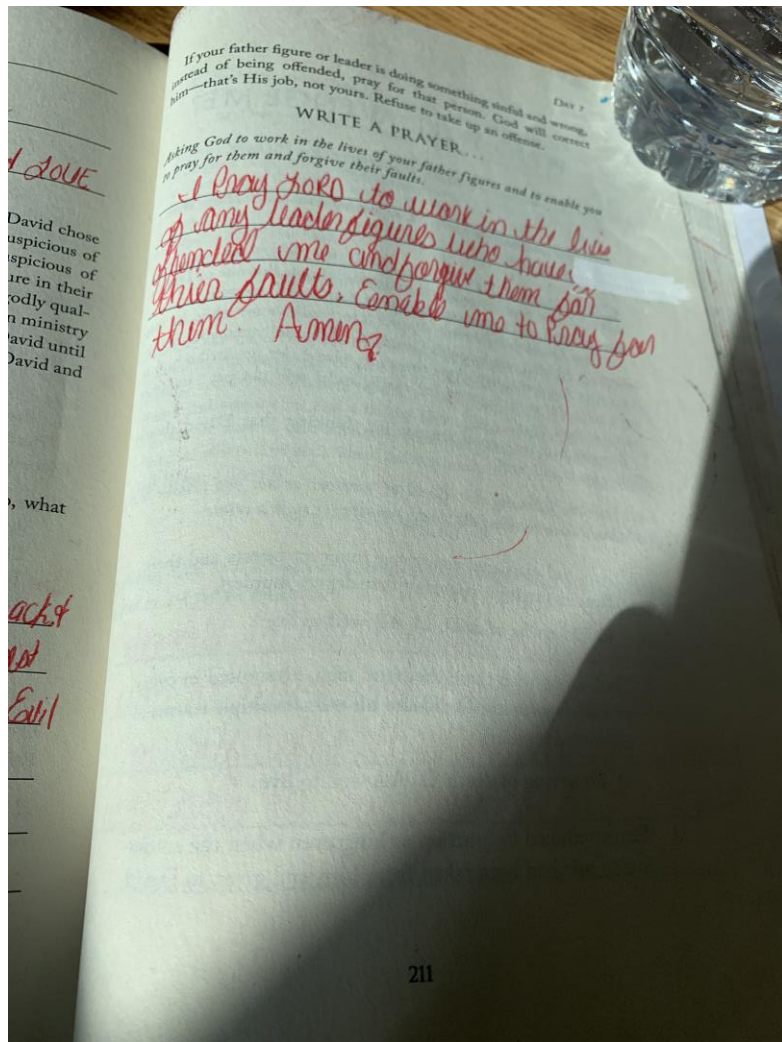 LOVE
David chose
uspicious of
spicious of
ure in their
odly qual-
n ministry
avid until
David and
, what
ack &
not
Evil
DAY 7
If your father figure or leader is doing something sinful and wrong,
instead of being offended, pray for that person. God will correct
him—that's His job, not yours. Refuse to take up an offense.
WRITE A PRAYER...
Asking God to work in the lives of your father figures and to enable you
to pray for them and forgive their faults.
I Pray LORD to work in the lives
of any leader figures who have
offended me and forgive them for
thier faults. Eanable me to Pray for
them. Amen
211